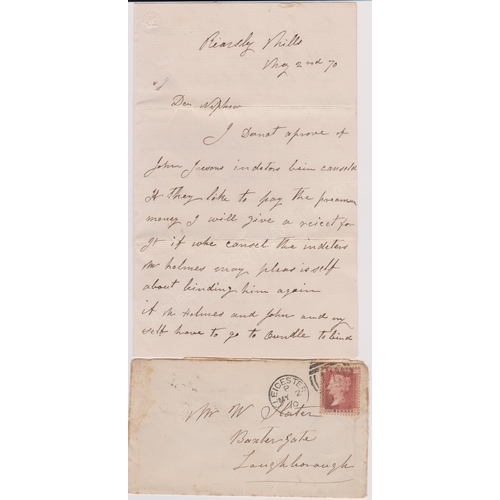 Rearsby Mills
May 2nd 70
Dear Nephew
I Donat aprove of
John Jevons indeters bein canseld
If they like to pay the preamen
money I will give a reicet for
it if whe cansel the indeters
Mr Holmes may pleas isself
about binding him again
if Mr Holmes and John and my
self have to go to Oundle to bind
LEICESTER
MY 2
70
Mr W Slater
Baxter Gate
Loughborough